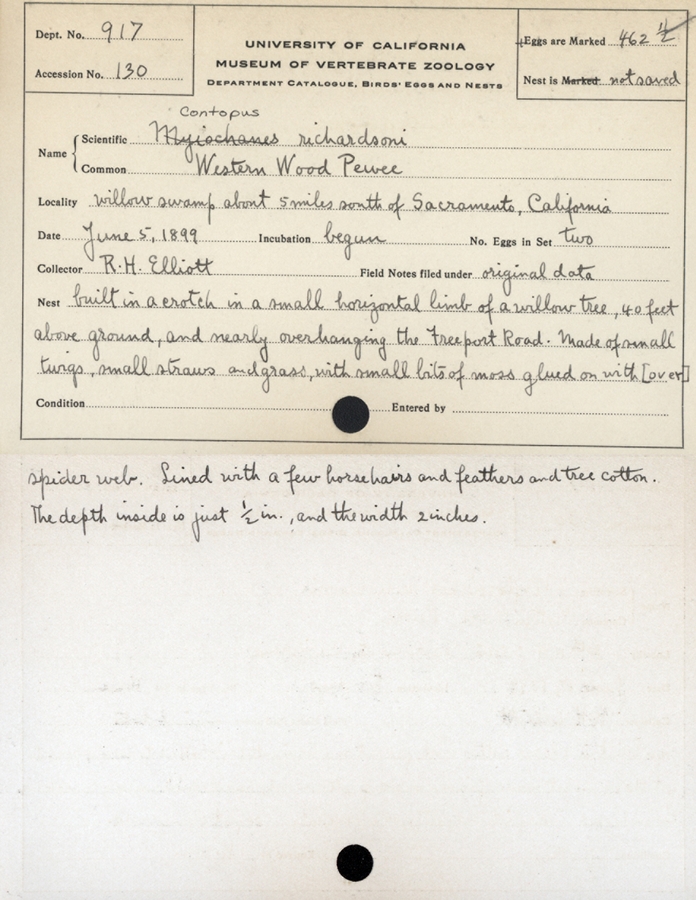 Dept. No. 917
Accession No. 130
UNIVERSITY OF CALIFORNIA
MUSEUM OF VERTEBRATE ZOOLOGY
DEPARTMENT CATALOGUE, BIRDS' EGGS AND NESTS
Eggs are Marked 462 1/2
Nest is Marked not saved
Contopus
Name { Scientific Myiochanes richardsoni
Common Western Wood Pewee
Locality willow swamp about 5 miles south of Sacramento, California
Date June 5, 1899 Incubation begun No. Eggs in Set two
Collector R. H. Elliott Field Notes filed under original data
Nest built in a crotch in a small horizontal limb of a willow tree, 40 feet
above ground, and nearly overhanging the Freeport Road. Made of small
twigs, small straws and grass, with small bits of moss glued on with [over]
Condition Entered by
spider web. Lined with a few horsehairs and feathers and tree cotton.
The depth inside is just 1/2 in., and the width 2 inches.